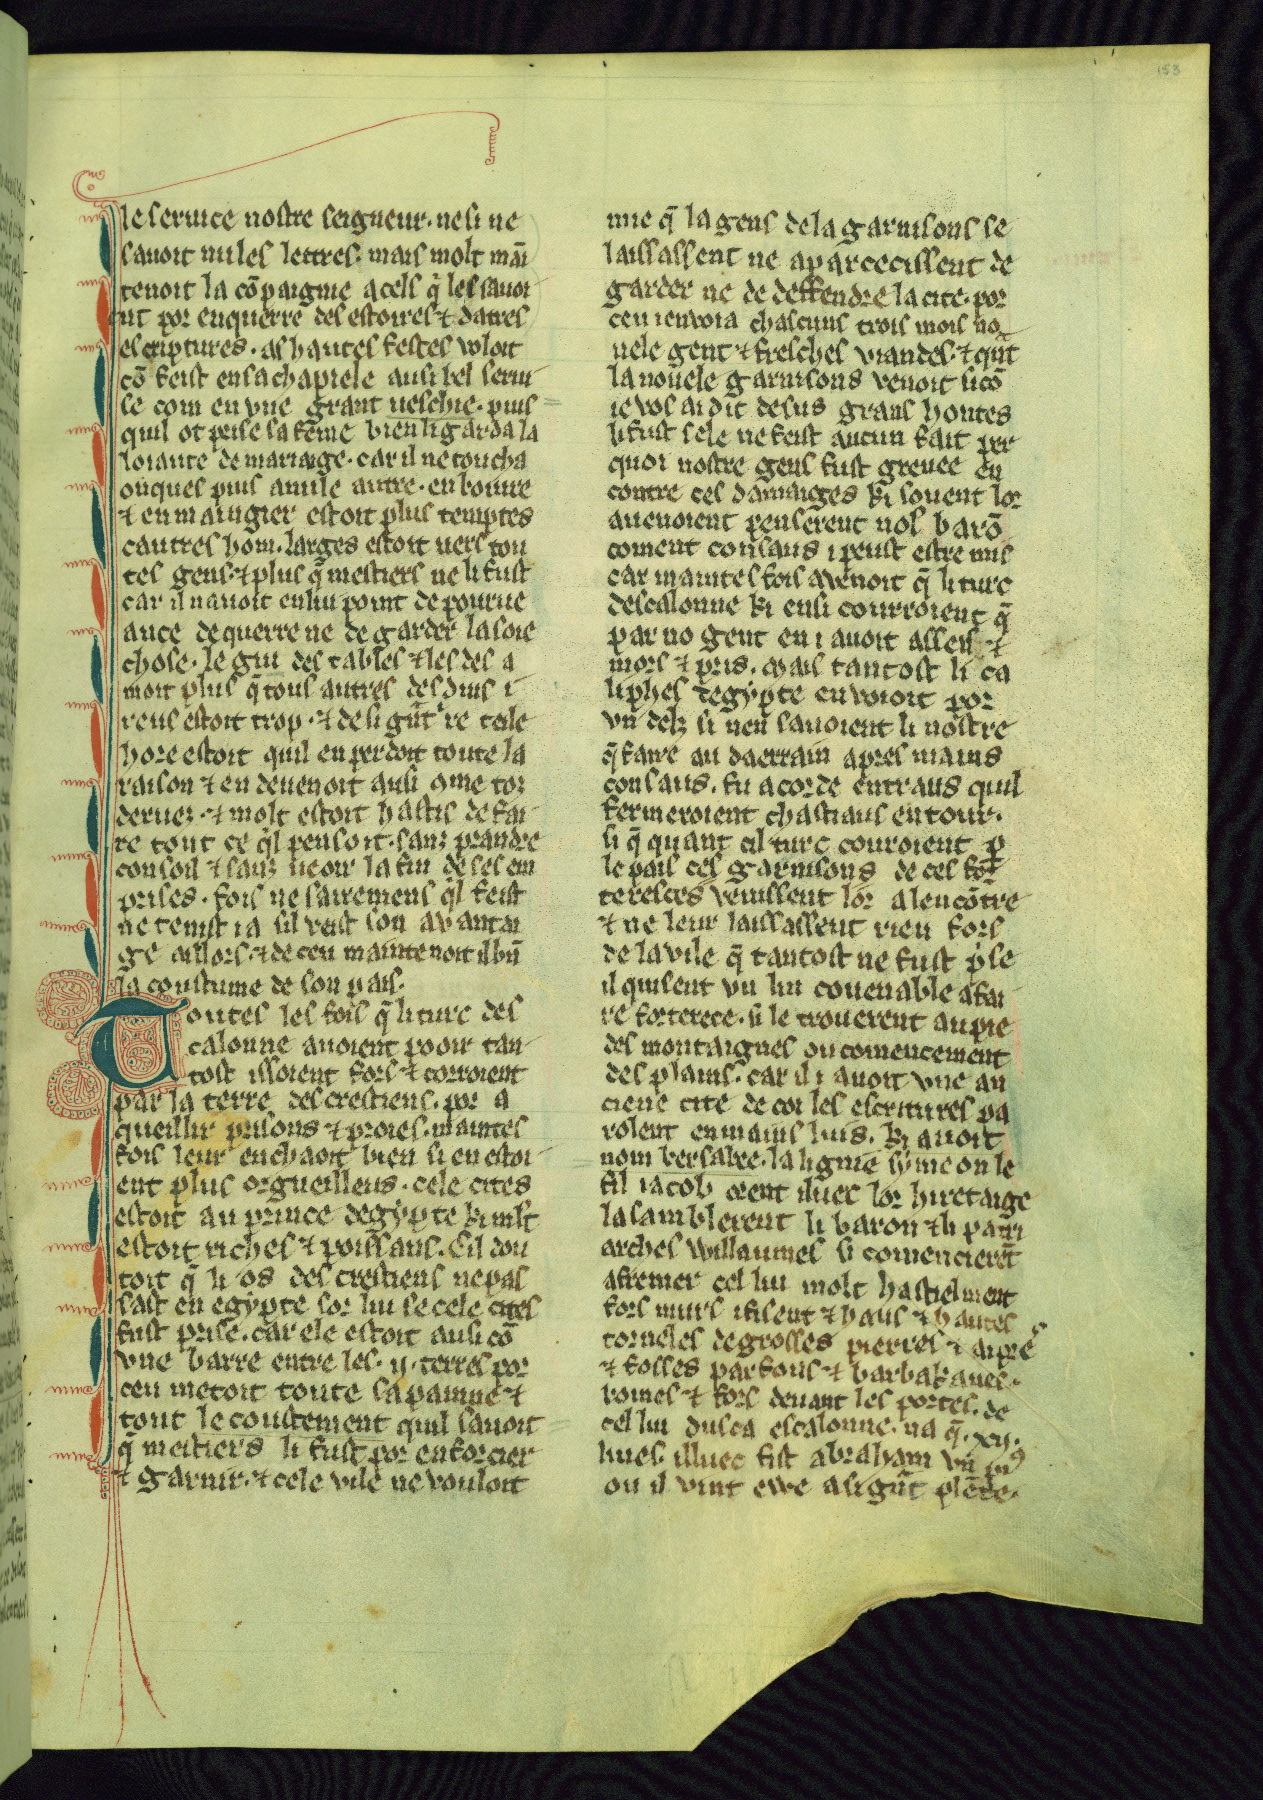 153
le seruice nostre seigneur. ne si ne
sauoit nules lettres. mais molt māī
tenoit la cōpaignie a cels q̄ les sauoi
ent por enquerre des estoires ⁊ dautres
escriptures. As hautes festes voloit
cō feist en sa chapiele ausi bel serui
se com en vne grant ueschie. puis
quil ot prise sa fēme bien li garda la
loiaute de mariaige. car il ne toucha
onques puis a nule autre. en boiure
⁊ en maingier estoit plus temptes
cautres hom. larges estoit uers tou
tes gens. ⁊ plus q̄ mestiers ne li fust
car il nauoit en lui point de pourue
ance de querre ne de garder la soie
chose. le giu des tables ⁊ les des a
moit plus q̄ tous autres desduis i
reus estoit trop. ⁊ de si gūt ire tele
hore estoit quil en perdoit toute la
raison ⁊ en deuenoit ausi 9me tor
deruez. ⁊ molt estoit hastis de fai
re tout ce q̄l pensoit. sanz prandre
consoil ⁊ sanz ueoir la fin de ses em
prises. fois ne sairemens q̄l feist
ne tenist ia sil veist son avantai
ge aillors. ⁊ de ceu maintenoit il bn̄
la coustume de son pais.
Toutes les fois q̄ li turc des
calonne auoient pooir tan
tost issoient fors ⁊ corroient
par la terre des crestiens. por a
queillir prisons ⁊ proies. maintes
fois leur encheoit bien si en estoi
ent plus orgueilleus. cele cites
estoit au prince degypte ki mlt
estoit riches ⁊ poissans. Cil dou
toit q̄ li os des crestiens ne pas
sast en egypte sor lui se cele cites
fust prise. car ele estoit ausi cō
vne barre entre les .ij. terres por
ceu metoit toute sa painne ⁊
tout le coustement quil sauoit
q̄ mestiers li fust por enforcier
⁊ garnir. ⁊ cele vile ne vouloit
mie q̄ la gens de la garnisons se
laissassent ne aparcecissent de
garder ne de deffendre la cite. por
ceu i enuoia chascuns trois mois no
uele gent ⁊ fresches viandes. ⁊ qn̄t
la nouele garnisons venoit si cō
ie vos ai dit desus grans hontes
li fust sele ne feist aucun fait per
quoi nostre gens fust greuee en
contre ces damaiges ki souent lor
auenoient penserent nos barō
coment consaus i peust estre mis
car maintes fois auenoit q̄ li turc
descalonne ki ensi courroient q̄
par no gent en i auoit asses ⁊
mors ⁊ pris. Mais tantost li ca
liphes degypte enuoioit por
vn delz si nen sauoient li nostre
q̄ faire au daerrain apres mains
consaus. fu acorde entraus quil
fermeroient chastiaus entour.
si q̄ quant cil turc couroient p̄
le pais ces garnisons de ces for
tereces venissent lor a lencōtre
⁊ ne leur laissassent rien fors
de la vile q̄ tantost ne fust p̄se
il quisent vn liu couenable a fai
re forterece. si le trouerent au pie
des montaignes ou comencement
des plains. car il i auoit vne an
ciene cite de coi les escritures pa
rolent en mains luis. ki auoit
nom bersabee. la lignie symeon le
fil iacob orent iluec lor hiretaige
la samblerent li baron ⁊ li patri
arches willaumes si comencierēt
a fremer cel liu molt hastielment
fors murs i fisent ⁊ haus ⁊ hautes
torneles de grosses pierres ⁊ aipres
⁊ fosses parfons ⁊ barbakanes
boines ⁊ fors deuant les portes. de
cel liu dusca escalonne. na q̄ .xij.
liues. illuec fist abraham vn pui9
ou il vint ewe a si gūt plēte.